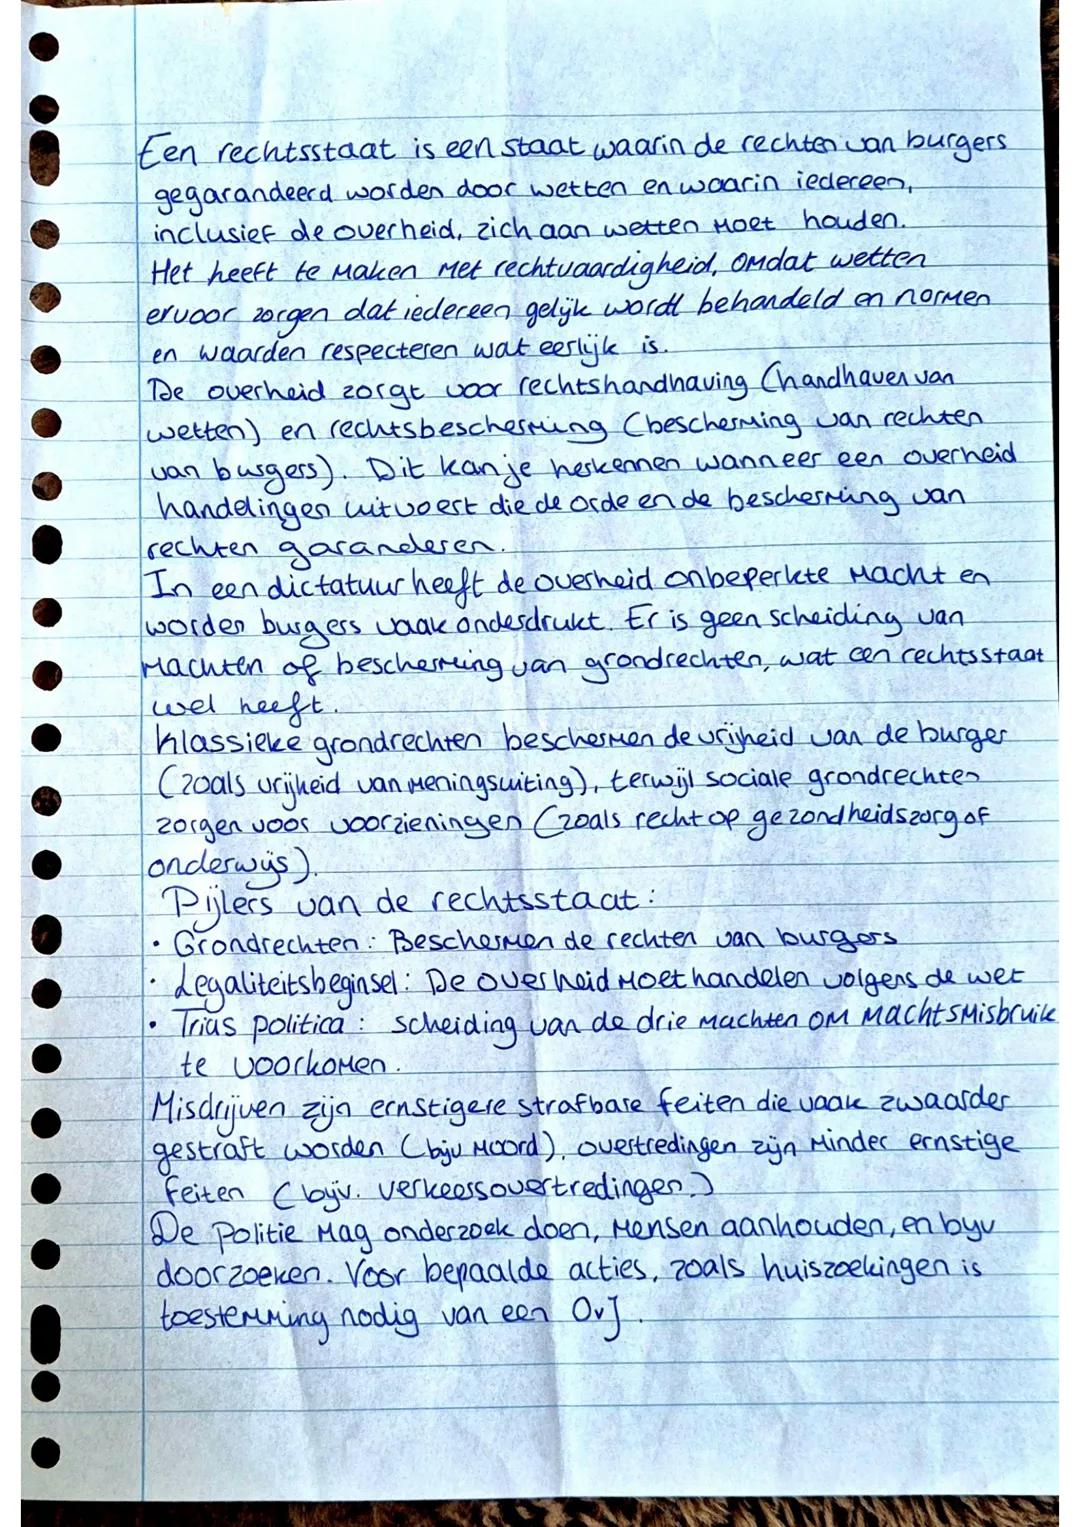 Een rechtsstaat is een staat waarin de rechten van burgers
gegarandeerd worden door wetten en waarin iedereen,
inclusief de overheid, zich aan wetten moet houden.
Het heeft te maken met rechtvaardigheid, omdat wetten
ervoor zorgen dat iedereen gelijk wordt behandeld en normen
en waarden respecteren wat eerlijk is.
De overheid zorgt voor rechtshandhaving (handhaven van
wetten) en rechtsbescherming (bescherming van rechten
van burgers). Dit kan je herkennen wanneer een overheid
handelingen uitvoert die de orde en de bescherming van
rechten garanderen.
In een dictatuur heeft de overheid onbeperkte macht en
worden burgers vaak onderdrukt. Er is geen scheiding van
machten of bescherming van grondrechten, wat een rechtsstaat
wel heeft.
Klassieke grondrechten beschermen de vrijheid van de burger
(zoals vrijheid van meningsuiting), terwijl sociale grondrechten
zorgen voor voorzieningen (zoals recht op gezondheidszorg of
onderwijs).
Pijlers van de rechtsstaat:
• Grondrechten: Beschermen de rechten van burgers
• Legaliteitsbeginsel: De overheid moet handelen volgens de wet
• Trias politica: scheiding van de drie machten om machtsmisbruik
te voorkomen.
Misdrijven zijn ernstigere strafbare feiten die vaak zwaarder
gestraft worden (bijv moord), overtredingen zijn minder ernstige
feiten (bijv. verkeersovertredingen.)
De politie mag onderzoek doen, mensen aanhouden, en bijv
doorzoeken. Voor bepaalde acties, zoals huiszoekingen is
toestemming nodig van een OvJ.